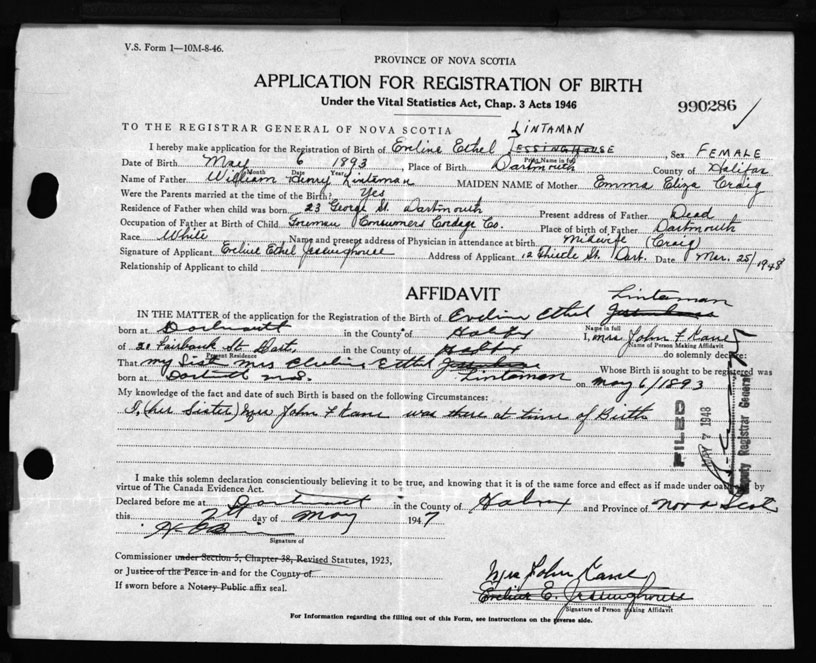 V.S. Form 1—10M-8-46.
PROVINCE OF NOVA SCOTIA
APPLICATION FOR REGISTRATION OF BIRTH
Under the Vital Statistics Act, Chap. 3 Acts 1946
990286
TO THE REGISTRAR GENERAL OF NOVA SCOTIA LINTAMAN
I hereby make application for the Registration of Birth of Eveline Ethel JESSINGHOUSE, Sex FEMALE
Print Name in full
Date of Birth May 6 1893, Place of Birth Dartmouth County of Halifax
Month Date Year
Name of Father William Henry Lintaman MAIDEN NAME of Mother Emma Eliza Craig
Were the Parents married at the time of the Birth? Yes
Residence of Father when child was born 23 George St. Dartmouth Present address of Father Dead
Occupation of Father at Birth of Child Foreman Consumers Cordage Co. Place of birth of Father Dartmouth
Race White Name and present address of Physician in attendance at birth Midwife (Craig)
Signature of Applicant Eveline Ethel Jessinghouse Address of Applicant 12 Thistle St. Dart. Date Mar. 25/1948
Relationship of Applicant to child
AFFIDAVIT
Lintaman
IN THE MATTER of the application for the Registration of Birth of Eveline Ethel
Name in full
born at Dartmouth in the County of Halifax I, Mrs John F Kane
Name of Person Making Affidavit
of 20 Fairbank St Dart, in the County of Halifax do solemnly declare:
Present Residence
That my Sister Mrs Eveline Ethel Whose Birth is sought to be registered was
born at N.S. Lintaman on May 6/1893
My knowledge of the fact and date of such Birth is based on the following Circumstances:
I, (her Sister) Mrs John F Kane was there at time of Birth
FILED
MAY 7 1948
Deputy Registrar General
I make this solemn declaration conscientiously believing it to be true, and knowing that it is of the same force and effect as if made under oath by
virtue of The Canada Evidence Act.
Declared before me at Dartmouth in the County of Halifax and Province of Nova Scotia
this day of May 1947
Signature of
Commissioner under Section 5, Chapter 38, Revised Statutes, 1923,
or Justice of the Peace in and for the County of
If sworn before a Notary Public affix seal.
Mrs John Kane
Eveline E. Jessinghouse
Signature of Person making Affidavit
For Information regarding the filling out of this Form, see instructions on the reverse side.